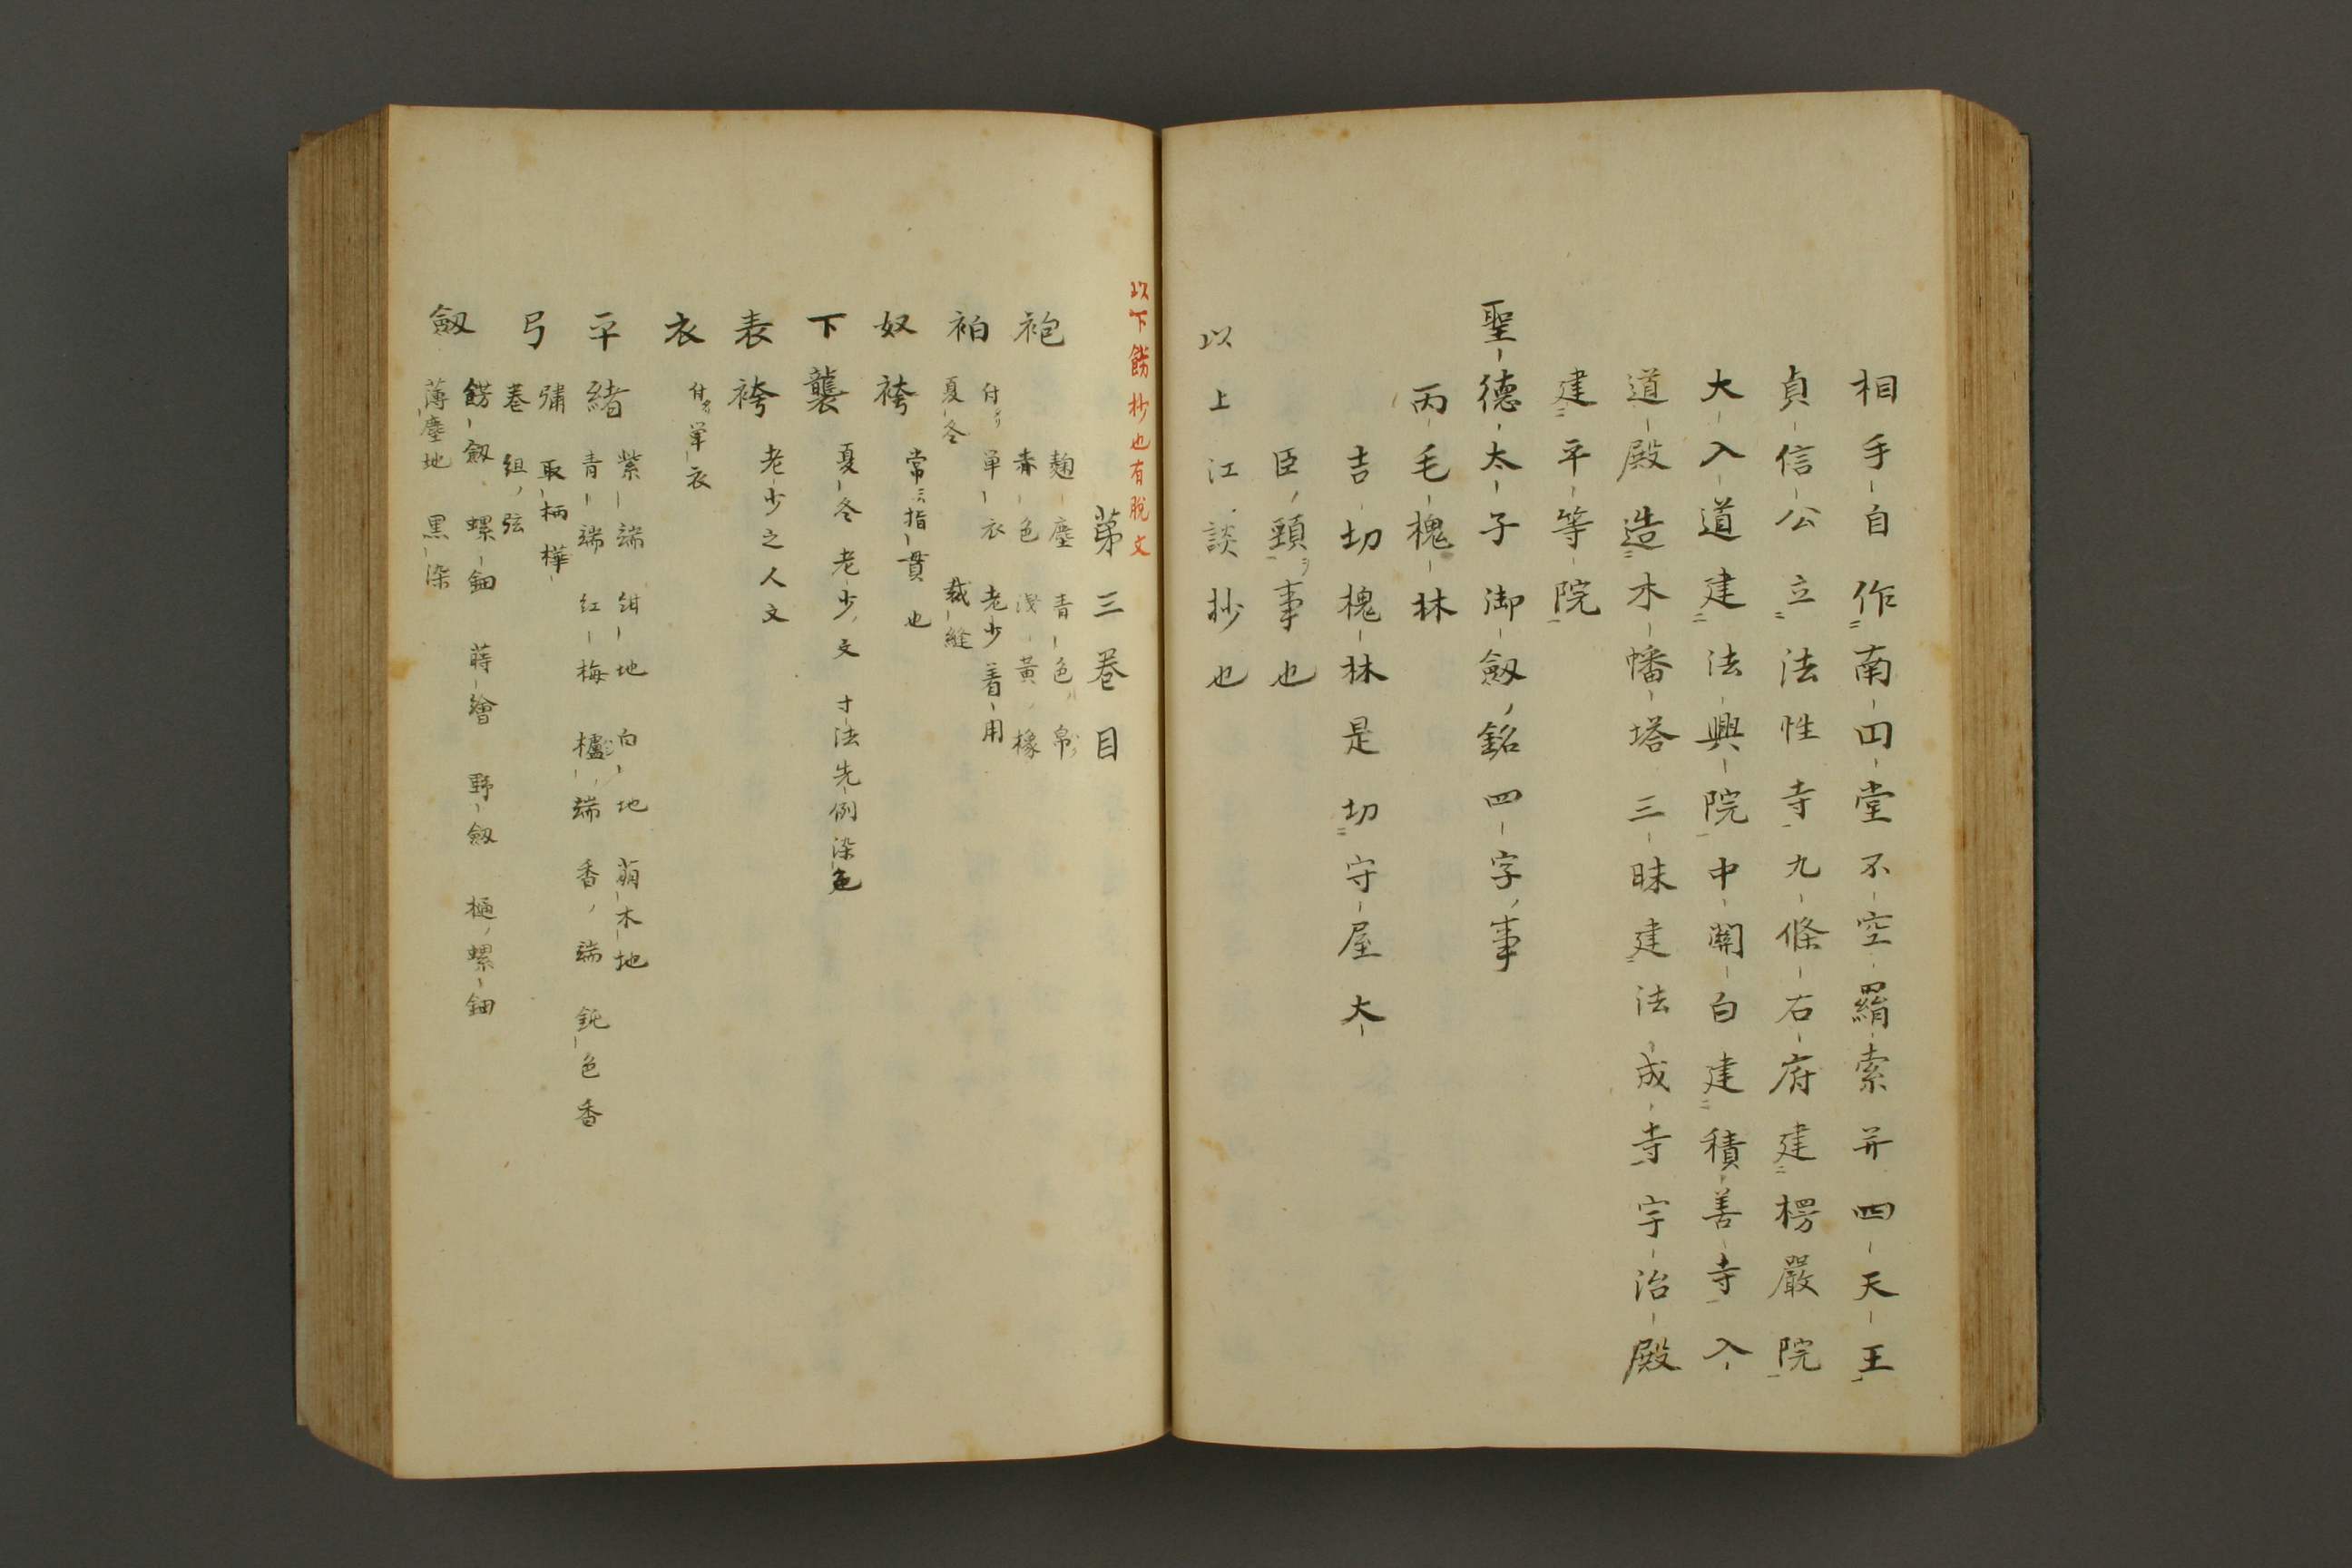 相手自作南円堂不空羂索并四天王
貞信公立法性寺九條右府建楞嚴院
大入道建法興院中関白建積善寺入
道殿造木幡塔三昧建法成寺宇治殿
建平等院
聖德太子御劔銘四字事
丙毛槐林
吉切槐林是切守屋大
臣頚ヲ事也
以上江談抄也
以下餝抄也有脱文
第三巻目
袍
麹塵 青色 帛
赤色 浅黄 橡
袙
付 単衣 老少着用
夏冬 裁縫
奴袴
常ニ指貫也
下襲
夏冬 老少文 寸法先例染色
表袴
老少之人文
衣
付 単衣
平緒
紫端 紺地 白地 萠木地
青端 紅梅 櫨端 香端 鈍色香
弓
弣 取柄 樺
巻組弦
劔
餝劔 螺鈿 蒔繪 野劔 樋螺鈿
薄塵地 黒染